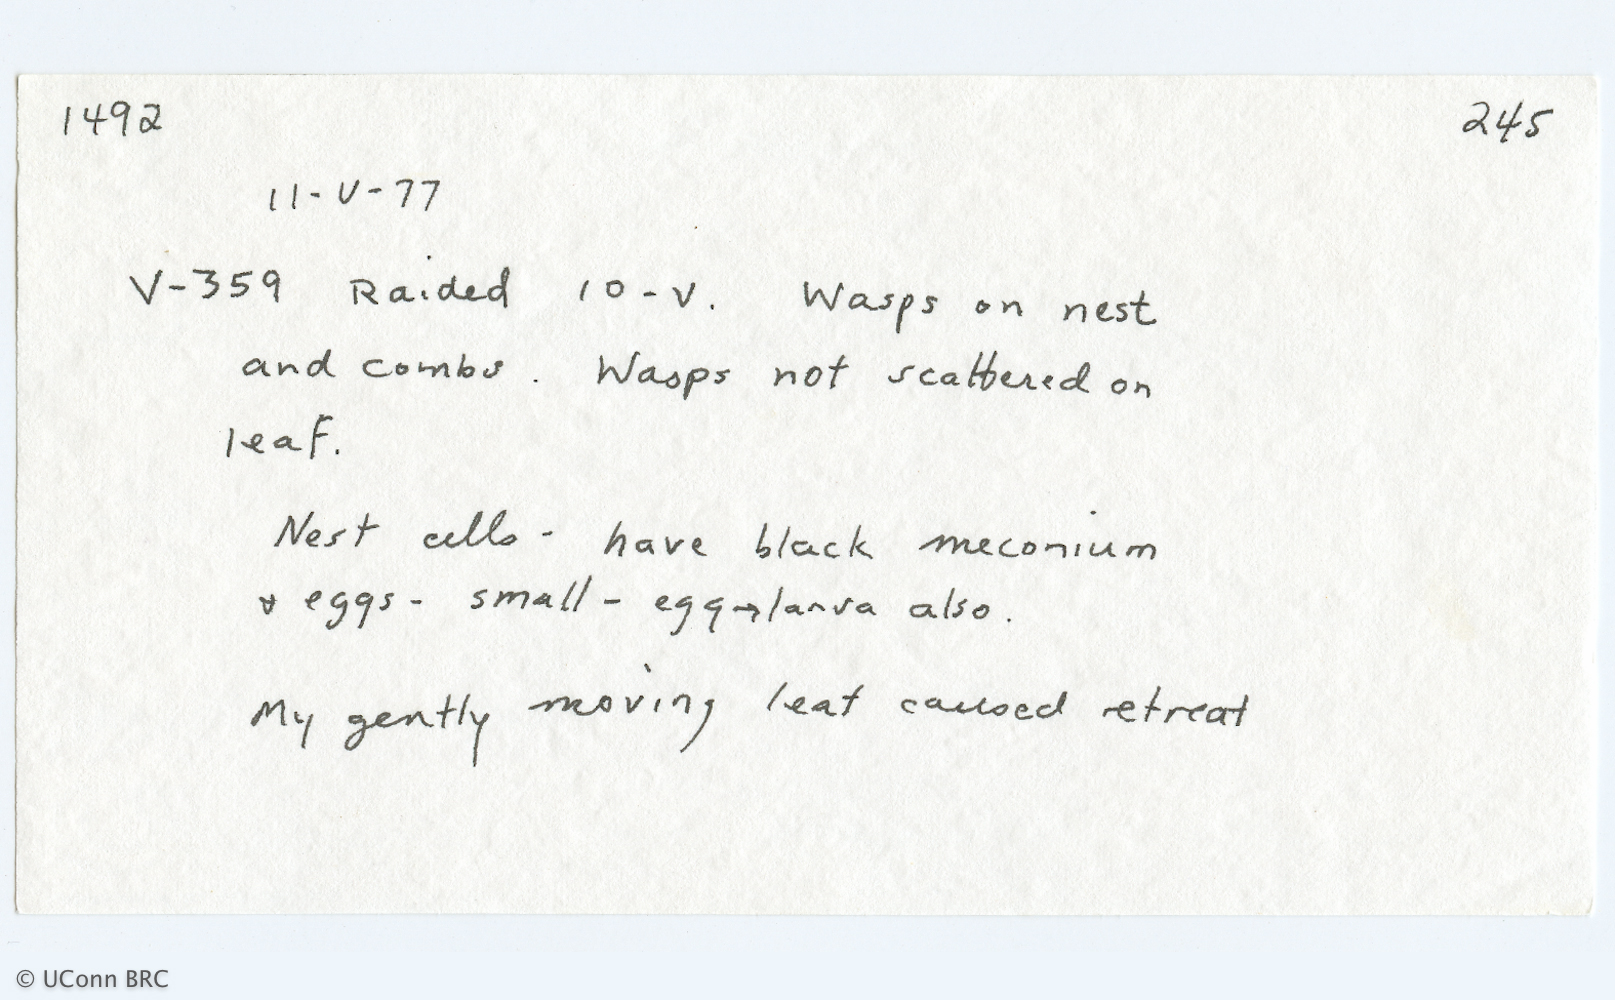 1492 245
11-V-77
V-359 Raided 10-V. Wasps on nest
and combs. Wasps not scattered on
leaf.
Nest cells - have black meconium
& eggs - small - egg→larva also.
My gently moving leaf caused retreat
© UConn BRC